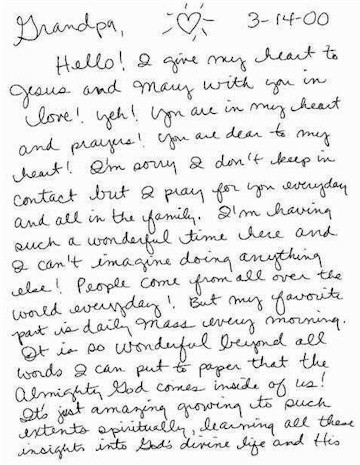 Grandpa, 3-14-00
Hello! I give my heart to
Jesus and Mary with you in
love! yeh! You are in my heart
and prayers! You are dear to my
heart! I'm sorry I don't keep in
contact but I pray for you everyday
and all in the family. I'm having
such a wonderful time here and
I can't imagine doing anything
else! People come from all over the
world everyday! But my favorite
part is daily Mass every morning.
It is so wonderful beyond all
words I can put to paper that the
Almighty God comes inside of us!
It's just amazing growing to such
extents spiritually, learning all these
insights into God's divine life and His